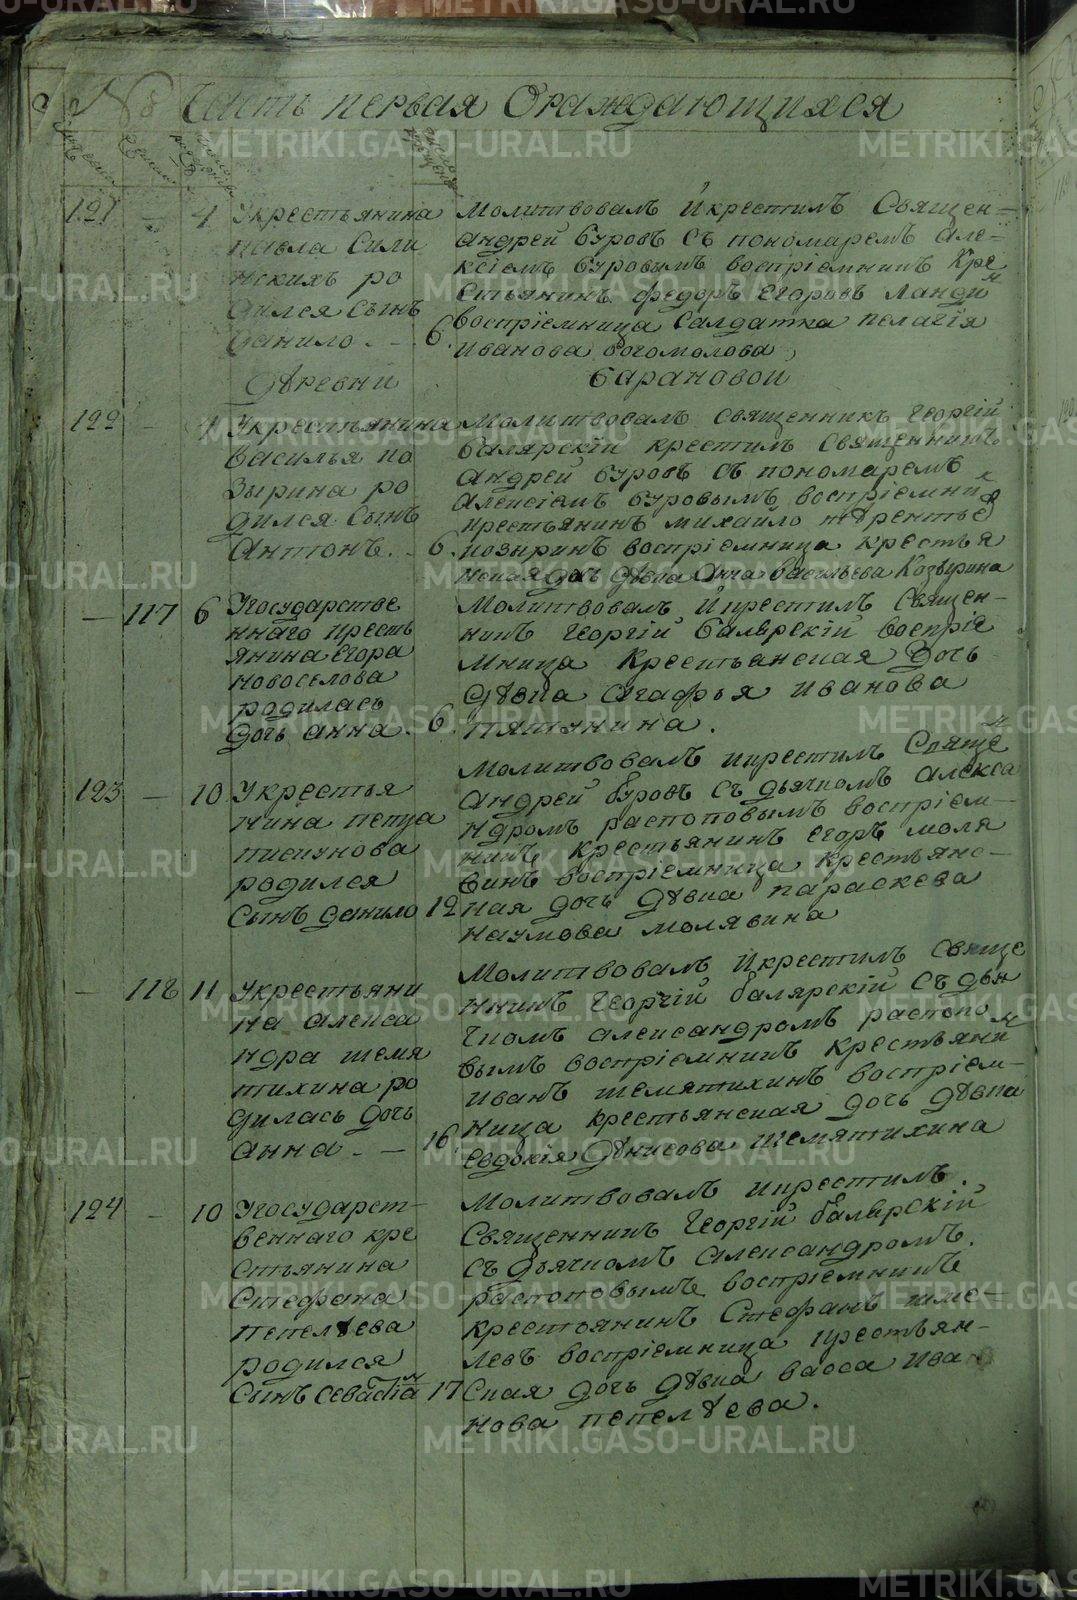 № Часть первая Ораждающихся
121 — 4 Укрестьянина
павла Сили
нскихъ ро
дился Сынъ
Данило. — 6.
Молитвовалъ Икрестилъ Священ=
андрей буровъ съ пономаремъ але=
ксіемъ буровымъ воспріемникъ Кре
стьянинъ федоръ Егоровъ Ландин
воспріемница Салдатка пелагія
иванова богомолова
Деревни Барановой
122 — 4 Укрестьянина
василья ко
зырина ро
дился Сынъ
Антонъ. — 6.
Молитвовалъ Священникъ Георгій
балярскій крестилъ Священникъ
андрей буровъ съ пономаремъ
алексіемъ буровымъ воспріемник
крестьянинъ михайло терентьев
козыринъ воспріемница крестья
нская дочь девка Анна васильева Козырина
— 117 6 Угосударстве
ннаго кресть
янина Егора
новоселова
родилась
дочь анна. 6.
Молитвовалъ Икрестилъ Священ—
никъ Георгій балярскій воспріе
мница Крестьянская Дочь
девка агафья иванова
пятунина.
123 — 10 Укрестья
нина петра
пискунова
родился
Сынъ данило 12
Молитвовалъ икрестилъ Свяще
андрей буровъ съ дьячкомъ алекса
ндромъ распоповымъ воспріем—
никъ крестьянинъ Егоръ моля
винъ воспріемница крестьянс—
кая дочь девка параскева
наумова молявина
— 118 11 Укрестьяни
на алекса
ндра шемя
тихина ро
дилась дочь
анна. — 16.
Молитвовалъ Икрестилъ Свяще
нникъ Георгій балярскій Съ дья
чкомъ александромъ распопо
вымъ воспріемникъ крестьянин
иванъ шемятихинъ воспріем—
ница крестьянская дочь девка
Евдокія денисова шемятихина
124 — 10 Угосударст—
веннаго кре
стьянина
Стефана
пепелѣева
родился
Сынъ Севастіан 17
Молитвовалъ икрестилъ.
Священникъ Георгій балярскій
съ дьячкомъ александромъ.
распоповымъ воспріемникъ
крестьянинъ Стефанъ шме—
левъ воспріемница крестьян—
ская дочь девка васса ива
нова пепелѣева.
METRIKI.GASO-URAL.RU